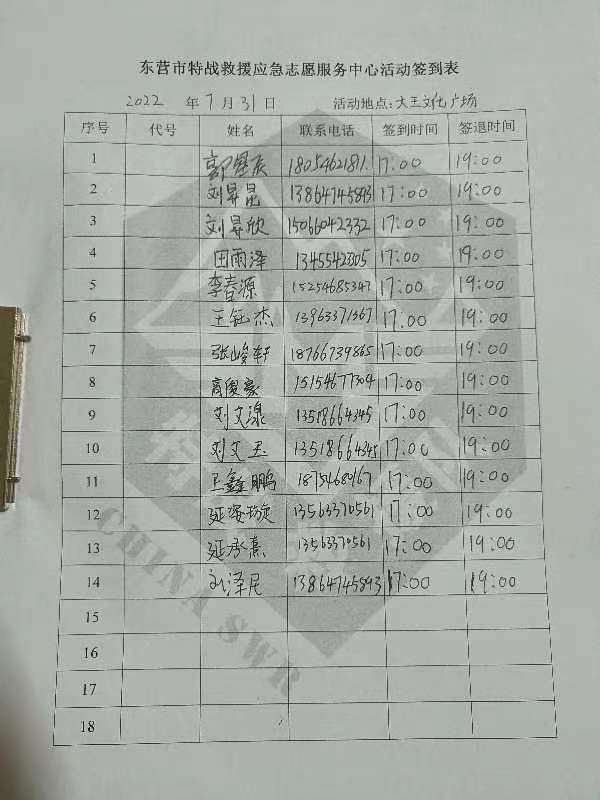 东营市特战救援应急志愿服务中心活动签到表
2022 年 7 月 31 日 活动地点:大王文化广场
序号 代号 姓名 联系电话 签到时间 签退时间
1 18054621811 17:00 19:00
2 刘昇昆 13864745893 17:00 19:00
3 刘昇欣 15066042332 17:00 19:00
4 田雨泽 1345542305 17:00 19:00
5 李春源 15254685347 17:00 19:00
6 王钰杰 13963371567 17:00 19:00
7 张峻轩 18766739865 17:00 19:00
8 高俊豪 15154677304 17:00 19:00
9 刘文湶 13518664345 17:00 19:00
10 刘文玉 13518664345 17:00 19:00
11 王鑫鹏 17:00 19:00
12 13563370561 17:00 19:00
13 延承熹 13563370561 17:00 19:00
14 刘泽民 13864745893 17:00 19:00
15
16
17
18
CHINA SWR